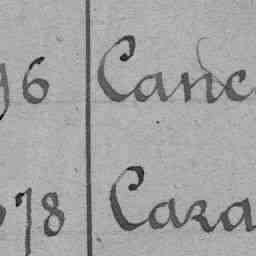 96 Canc
78 Cara